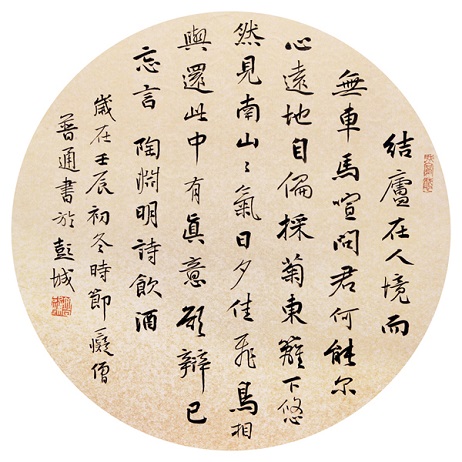 結廬在人境而
無車馬喧問君何能尔
心遠地自偏採菊東籬下悠
然見南山々氣日夕佳飛鳥相
與還此中有眞意欲辯已
忘言 陶淵明詩飲酒
歲在壬辰初冬時節癡僧
普通書於彭城